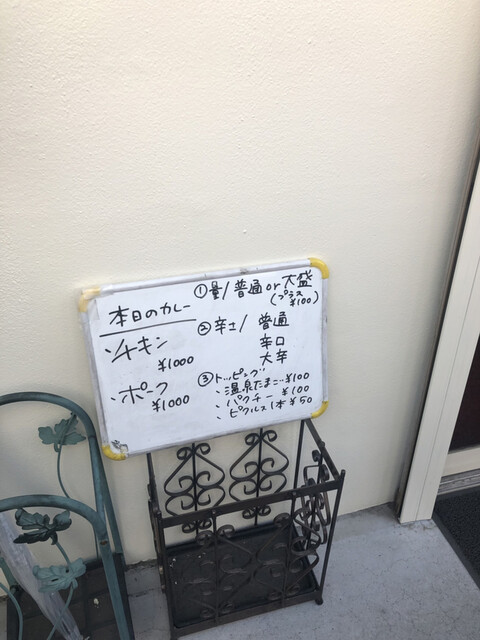 本日のカレー
・チキン
¥1000
・ポーク
¥1000
①量/普通or大盛
(プラス
¥100)
②辛さ/ 普通
辛口
大辛
③トッピング
・温泉たまご‥¥100
・パクチー ¥100
・ピクルス1本¥50